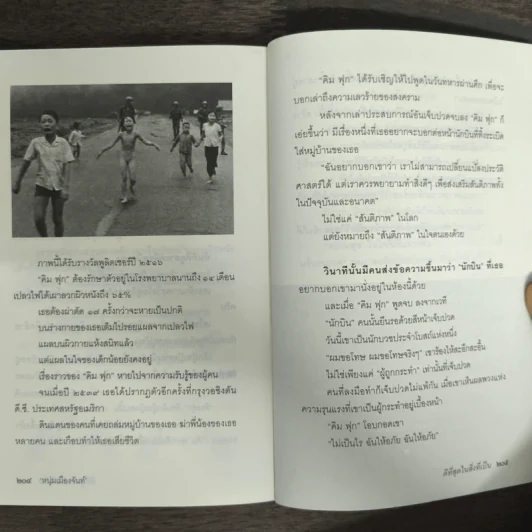 ภาพนี้ได้รับรางวัลพูลิตเซอร์ปี ๒๕๑๖
"คิม ฟุก" ต้องรักษาตัวอยู่ในโรงพยาบาลนานถึง ๑๔ เดือน
เปลวไฟได้เผาลวกผิวหนังถึง ๖๕%
เธอต้องผ่าตัด ๑๗ ครั้งกว่าจะหายเป็นปกติ
บนร่างกายของเธอเต็มไปรอยแผลจากเปลวไฟ
แผลบนผิวกายแห้งสนิทแล้ว
แต่แผลในใจของเด็กน้อยยังคงอยู่
เรื่องราวของ "คิม ฟุก" หายไปจากความรับรู้ของผู้คน
จนเมื่อปี ๒๕๓๙ เธอได้ปรากฏตัวอีกครั้งที่กรุงวอชิงตัน
ดี.ซี. ประเทศสหรัฐอเมริกา
ดินแดนของคนที่เคยถล่มหมู่บ้านของเธอ ฆ่าพี่น้องของเธอ
หลายคน และเกือบทำให้เธอเสียชีวิต
๒๐๔ 'หนุ่มเมืองจันท์'
"คิม ฟุก" ได้รับเชิญให้ไปพูดในวันทหารผ่านศึก เพื่อจะ
บอกเล่าถึงความเลวร้ายของสงคราม
หลังจากเล่าประสบการณ์อันเจ็บปวดจบลง "คิม ฟุก" ก็
เอ่ยขึ้นว่า มีเรื่องหนึ่งที่เธออยากจะบอกต่อหน้านักบินที่ทิ้งระเบิด
ใส่หมู่บ้านของเธอ
"ฉันอยากบอกเขาว่า เราไม่สามารถเปลี่ยนแปลงประวัติ
ศาสตร์ได้ แต่เราควรพยายามทำสิ่งดีๆ เพื่อส่งเสริมสันติภาพทั้ง
ในปัจจุบันและอนาคต"
ไม่ใช่แค่ "สันติภาพ" ในโลก
แต่ยังหมายถึง "สันติภาพ" ในใจตนเองด้วย
วินาทีนั้นมีคนส่งข้อความขึ้นมาว่า "นักบิน" ที่เธอ
อยากบอกเขามานั่งอยู่ในห้องนี้ด้วย
และเมื่อ "คิม ฟุก" พูดจบ ลงจากเวที
"นักบิน" คนนั้นยืนรอด้วยสีหน้าเจ็บปวด
วันนี้เขาเป็นนักบวชประจำโบสถ์แห่งหนึ่ง
"ผมขอโทษ ผมขอโทษจริงๆ" เขาร้องไห้สะอึกสะอื้น
ไม่ใช่เพียงแค่ "ผู้ถูกกระทำ" เท่านั้นที่เจ็บปวด
คนที่ลงมือทำก็เจ็บปวดไม่แพ้กัน เมื่อเขาเห็นผลพวงแห่ง
ความรุนแรงที่เขาเป็นผู้กระทำอยู่เบื้องหน้า
"คิม ฟุก" โอบกอดเขา
"ไม่เป็นไร ฉันให้อภัย ฉันให้อภัย"
ดีที่สุดในสิ่งที่เป็น ๒๐๕